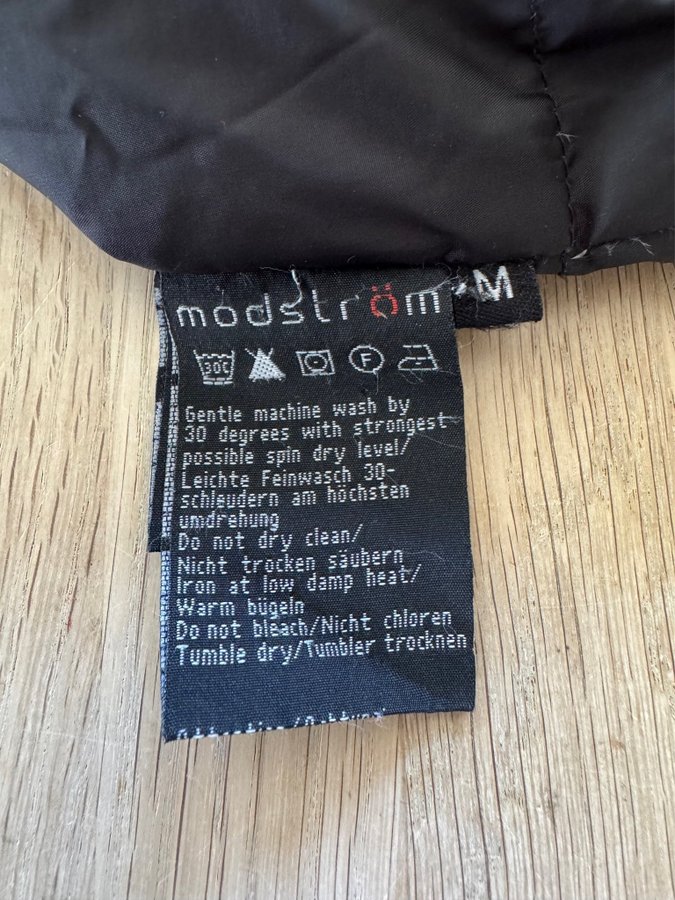 modström
M
30C
F
Gentle machine wash by
30 degrees with strongest
possible spin dry level/
Leichte Feinwasch 30-
schleudern am höchsten
umdrehung
Do not dry clean/
Nicht trocken säubern
Iron at low damp heat/
Warm bügeln
Do not bleach/Nicht chloren
Tumble dry/Tumbler trocknen